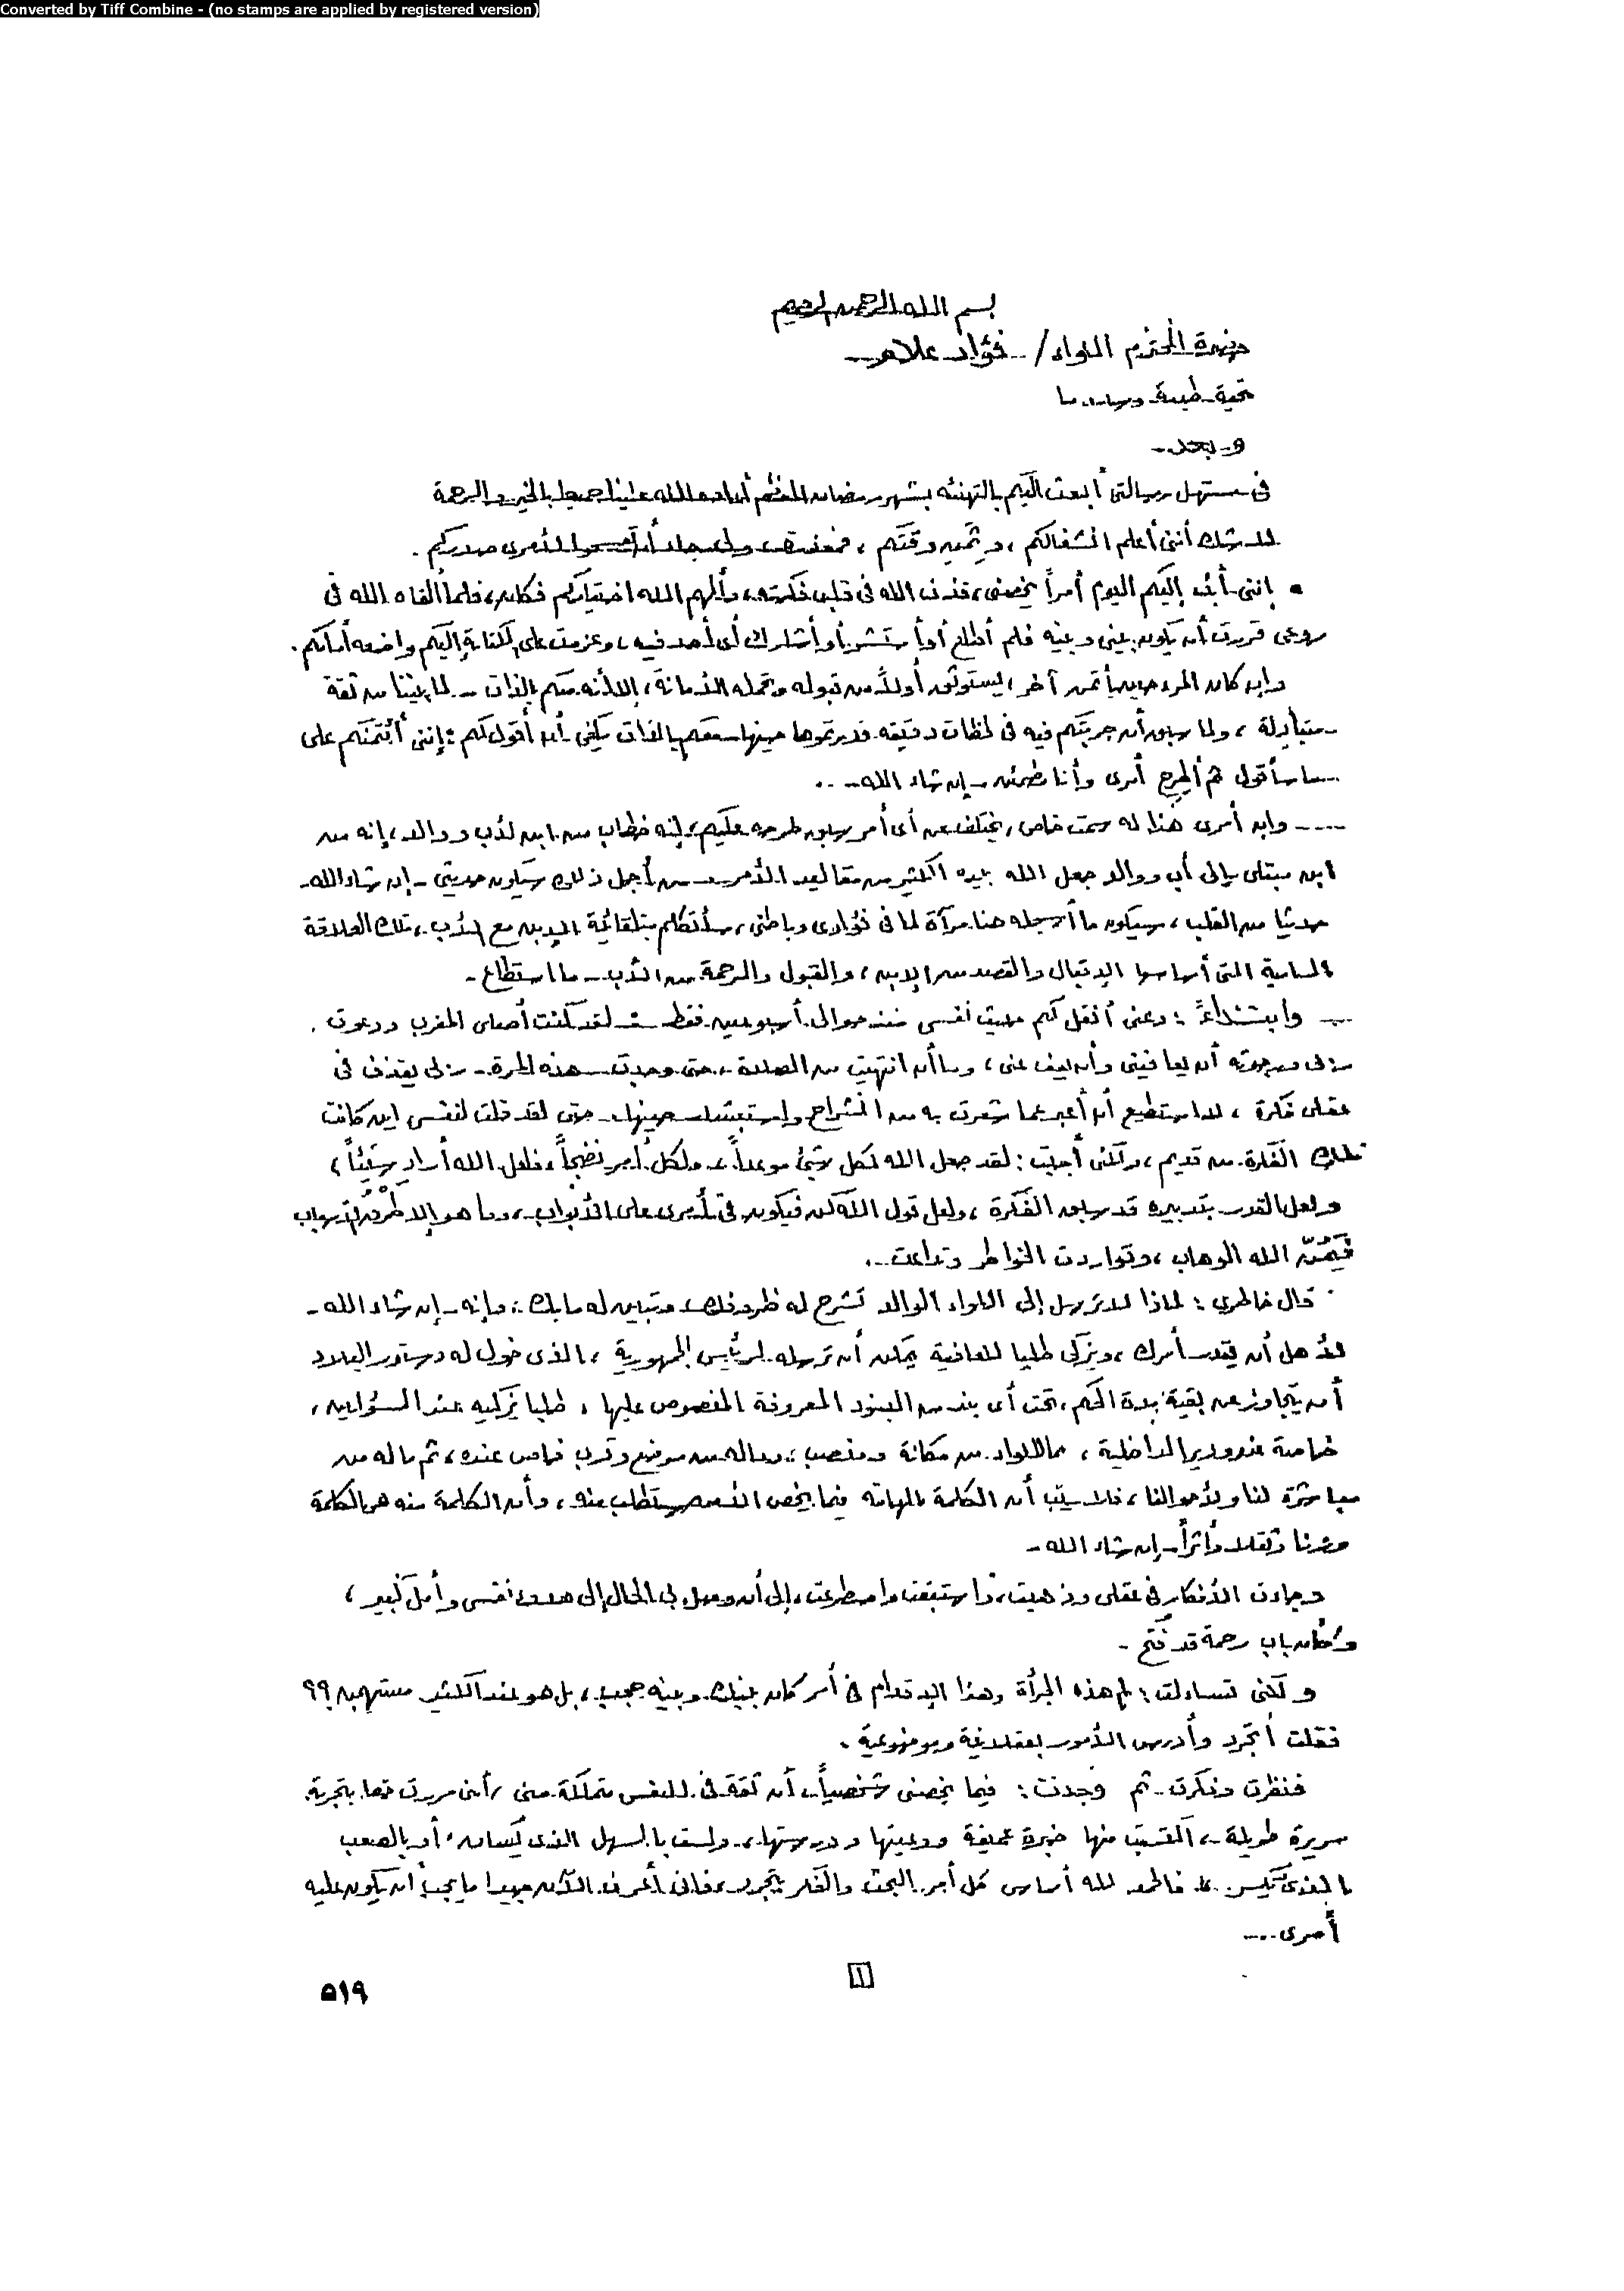 Converted by Tiff Combine - (no stamps are applied by registered version)
بسم الله الرحمن الرحيم
حضرة المحترم اللواء / فؤاد علام
تحية طيبة
وبعد
فى مستهل رسالتى أبعث اليكم بالتهنئه بشهر رمضان المعظم أعاده الله علينا جميعا بالخير والرحمة
لا شك أننى أعلم انشغالكم ، وثمين وقتكم ، فمعذرة ولى رجاء أن تفسحوا لأمرى صدركم .
• إننى أبث إليكم اليوم أمراً يخصنى ، قذف الله فى قلبى فكرته ، وألهم الله اختياركم فكان ، فلما ألقاه الله فى
روعى قررت أن يكون بينى وبينه فلم أطلع أو أستشر أو أشارك أى أحد فيه ، وعزمت على الكتابة إليكم واضعه أمامكم .
وإن كان المرء حين يأتمن آخر ، ليستوثق أولاً من قبوله وتحمله الأمانة ، إلا أنه معكم بالذات - لما بيننا من ثقة
متبادلة ، ولما سبق أن جربتكم فيه فى لحظات دقيقه قدرتموها حينها معكم بالذات يكفى أن أقول لكم : إننى أئتمنكم على
ما سأقول ثم أطرح أمرى وأنا مطمئن - إن شاء الله - ..
---- وإن أمرى هذا له سمت خاص ، يختلف عن أى أمر سبق طرحه عليكم ، إنه خطاب من ابن لأب ووالد ، إنه من
ابن مبتلى إلى أب ووالد جعل الله بيده الكثير من مقاليد الأمر من أجل ذلك سيكون حديثى - إن شاء الله -
حديثا من القلب ، سيكون ما أسجله هنا مرآة لما فى فؤادى وباطنى ، سأتكلم بتلقائية الابن مع الأب ، تلك العلاقة
السامية التى أساسها الإقبال والقصد من الابن ، والقبول والرحمة من الأب - ما استطاع -
--- وابتداءً : دعنى أنقل لكم حديث نفسى منذ حوالى أسبوعين فقط - لقد كنت أصلى المغرب ودعوت
ربى ورجوته أن يعافينى وأن يعف عنى ، وما أن انتهيت من الصلاة ، حتى وجدت هذه المرة - ربى يقذف فى
عقلى فكرة ، لا أستطيع أن أعبر عما شعرت به من انشراح واستبشار حينها حتى لقد قلت لنفسى اين كانت
تلك الفكرة من قديم ، ولكنى أجبت : لقد جعل الله لكل شئ موعداً ، ولكل أمر نضجاً ، فلعل الله أراد شيئاً ،
ولعل القدر بتدبيره قد سبق الفكرة ، ولعل قول الله كن فيكون فى أمرى على الأبواب ، وما هو إلا طَرْقٌ لأسباب
فَيَمُنّ الله الوهاب ، وتواردت الخواطر وتداعت ..
قال خاطرى : لماذا لا ترسل إلى اللواء الوالد تشرح له ظروفك وتبين له ما بك ، وإنه - إن شاء الله -
لأهل أن يقدر أمرك ، ويزكى طلبا للعافية يمكن أن ترسله لرئيس الجمهورية ، الذى خول له دستور البلاد
أن يتجاوز عن بقية مدة الحكم ، تحت أى بند من البنود المعروفة المنصوص عليها ، طلبا يزكيه عند المسؤولين ،
خاصة عند وزير الداخلية ، بما للواء من مكانة ومنصب ، وماله من موضع وقرب خاص عنده ، ثم ما له من
مباشرة لنا ولأحوالنا ، فلا ريب أن الكلمة الهامه فيما يخص الأمر ستطلب منه ، وأن الكلمة منه هى الكلمة
وزنا وثقلا وأثراً - إن شاء الله -
وجاءت الأفكار فى عقلى وذهبت ، واستبقت واصطرعت ، إلى أن وصل بى الحال إلى هدوء نفسى وأمل كبير ،
وكأن باب رحمة قد فتح -
ولكنى تساءلت : لم هذه الجرأة وهذا الإقدام فى أمر كان بينك وبينه حجب ، بل هو عند الكثير مستهجن ؟؟
فقلت أتجرد وأدرس الأمور بعقلانية وبموضوعية .
فنظرت وفكرت - ثم وجدت : فيما يخصنى شخصياً ، أن ثقة فى النفس متملكة منى ، أننى مررت حقا بتجربة
مريرة طويلة ، اكتسبت منها خبرة عميقة ووعيتها ودرستها ، ولست بالسهل الذى يُساق ، أو بالصعب
الذى يُكسر .. فالحمد لله أساس كل أمر البحث والفكر بتجرد ، فانى أعرف الآن جيدا ما يجب أن يكون عليه
أمرى ....
١
٥١٩